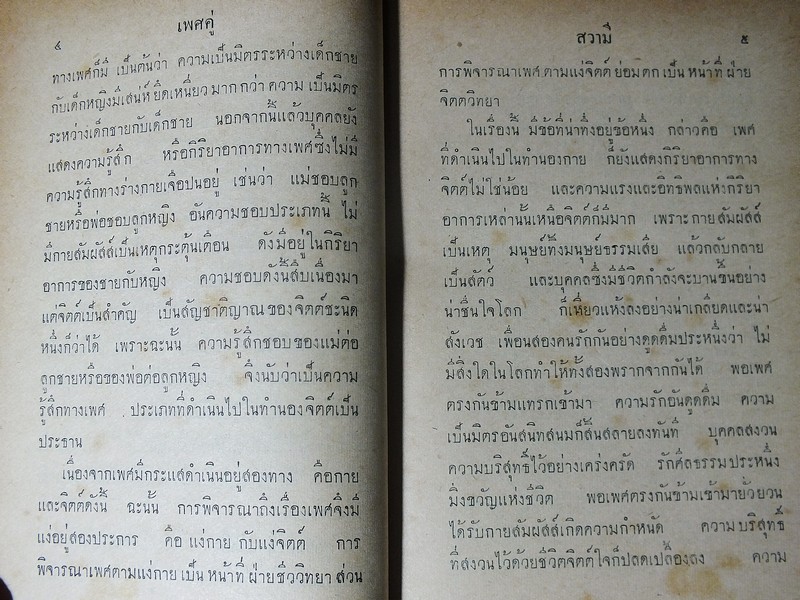 เพศคู่
๔
ทางเพศก็มี เป็นต้นว่า ความเป็นมิตรระหว่างเด็กชาย
กับเด็กหญิงมีเสน่ห์ ยึดเหนี่ยว มาก กว่า ความ เป็นมิตร
ระหว่างเด็กชายกับเด็กชาย นอกจากนี้แล้วบุคคลยัง
แสดงความรู้สึก หรือกิริยาอาการทางเพศซึ่งไม่มี
ความรู้สึกทางร่างกายเจือปนอยู่ เช่นว่า แม่ชอบลูก
ชายหรือพ่อชอบลูกหญิง อันความชอบประเภทนี้ ไม่
มีกายสัมผัสส์เป็นเหตุกระตุ้นเตือน ดังมีอยู่ในกิริยา
อาการของชายกับหญิง ความชอบดังนี้สืบเนื่องมา
แต่จิตต์เป็นสำคัญ เป็นสัญชาติญาณของจิตต์ชะนิด
หนึ่งก็ว่าได้ เพราะฉะนั้น ความรู้สึกชอบของแม่ต่อ
ลูกชายหรือของพ่อต่อลูกหญิง จึงนับว่าเป็นความ
รู้สึกทางเพศ ประเภทที่ดำเนินไปในทำนองจิตต์เป็น
ประธาน
เนื่องจากเพศมีกระแสดำเนินอยู่สองทาง คือกาย
และจิตต์ดังนี้ ฉะนั้น การพิจารณาถึงเรื่องเพศจึงมี
แง่อยู่สองประการ คือ แง่กาย กับแง่จิตต์ การ
พิจารณาเพศตามแง่กาย เป็น หน้าที่ ฝ่ายชีววิทยา ส่วน
สวามี
๕
การพิจารณาเพศ ตามแง่จิตต์ ย่อม ตก เป็น หน้า ที่ ฝ่าย
จิตต์วิทยา
ในเรื่องนี้ มีข้อที่น่าทึ่งอยู่ข้อหนึ่ง กล่าวคือ เพศ
ที่ดำเนินไปในทำนองกาย ก็ยังแสดงกิริยาอาการทาง
จิตต์ไม่ใช่น้อย และความแรงและอิทธิพลแห่งกิริยา
อาการเหล่านั้นเหนือจิตต์ก็มีมาก เพราะกายสัมผัสส์
เป็นเหตุ มนุษย์ทิ้งมนุษย์ธรรมเสีย แล้วกลับกลาย
เป็นสัตว์ และบุคคลซึ่งมีชีวิตกำลังจะบานชื่นอย่าง
น่าชื่นใจโลก ก็เหี่ยวแห้งลงอย่างน่าเกลียดและน่า
สังเวช เพื่อนสองคนรักกันอย่างดูดดื่มประหนึ่งว่า ไม่
มีสิ่งใดในโลกทำให้ทั้งสองพรากจากกันได้ พอเพศ
ตรงกันข้ามแทรกเข้ามา ความรักอันดูดดื่ม ความ
เป็นมิตรอันสนิทสนมก็สิ้นสลายลงทันที บุคคลสงวน
ความบริสุทธิ์ไว้อย่างเคร่งครัด รักศีลธรรมประหนึ่ง
มิ่งขวัญแห่งชีวิต พอเพศตรงกันข้ามเข้ามายั่วยวน
ได้รับกายสัมผัสส์เกิดความกำหนัด ความ บริสุทธิ์
ที่สงวนไว้ด้วยชีวิตจิตต์ใจก็ปลดเปลื้องลง ความ